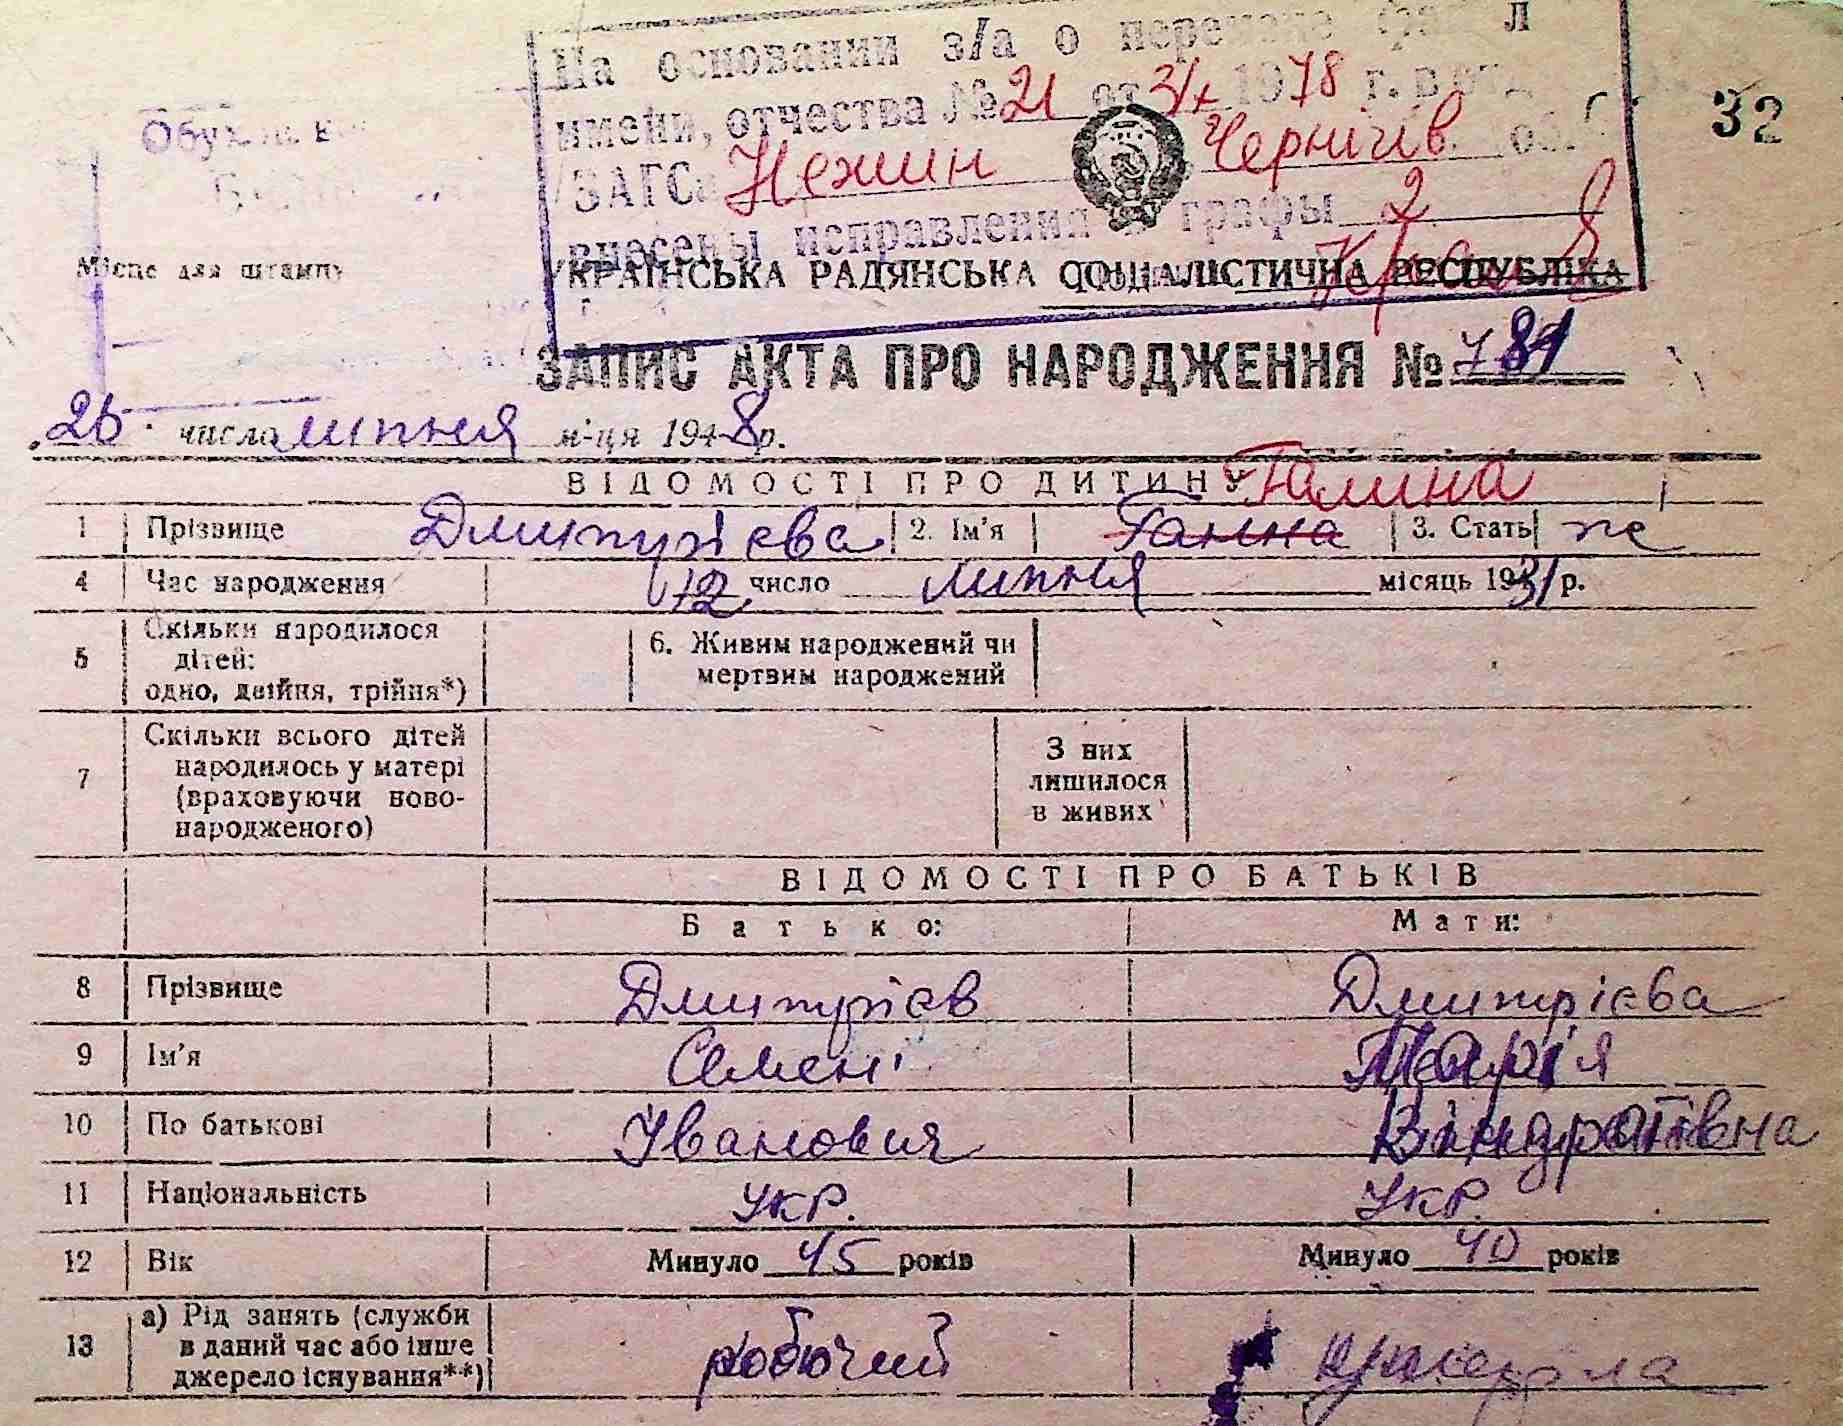 На основании з/а о перемене Л
имени, отчества № 21 от 3/х 1978 г. в
32
ЗАГСа Нежин Чернигів обл.
внесены исправления в графы 2
Місце для штампу
УКРАЇНСЬКА РАДЯНСЬКА СОЦІАЛІСТИЧНА РЕСПУБЛІКА
ЗАПИС АКТА ПРО НАРОДЖЕННЯ № 781
26 числа липня м-ця 1948 р.
ВІДОМОСТІ ПРО ДИТИНУ Галина
1 Прізвище Дмитрієва 2. Ім'я Ганна 3. Стать ж
4 Час народження 12 число липня місяць 1931 р.
5 Скільки народилося дітей: одно, двійня, трійня*) 6. Живим народжений чи мертвим народжений
7 Скільки всього дітей народилось у матері (враховуючи новонародженого) З них лишилося в живих
ВІДОМОСТІ ПРО БАТЬКІВ
Батько: Мати:
8 Прізвище Дмитрієв Дмитрієва
9 Ім'я Семен Марія
10 По батькові Іванович Кіндратівна
11 Національність Укр. Укр.
12 Вік Минуло 45 років Минуло 40 років
13 а) Рід занять (служби в даний час або інше джерело існування**) робочий